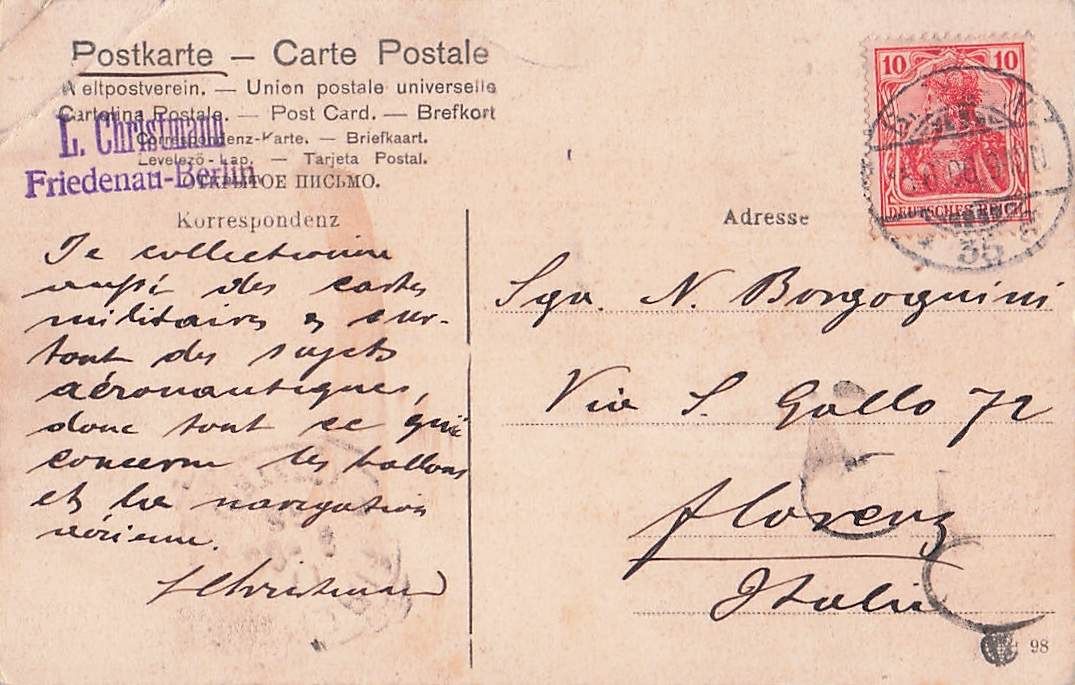 Postkarte — Carte Postale
Weltpostverein. — Union postale universelle
Cartolina Postale. — Post Card. — Brefkort
Correspondenz-Karte. — Briefkaart.
Levelező-Lap. — Tarjeta Postal.
ОТКРЫТОЕ ПИСЬМО.
L. Christmann
Friedenau-Berlin
Korrespondenz
Je collectionne
aussi des cartes
militaires & sur-
tout des sujets
aéronautiques,
donc tout ce qui
concerne les ballons
et la navigation
aérienne.
LChristmann
10 10
DEUTSCHES REICH
35
Adresse
Sgr. N. Borgognini
Via S. Gallo 72
Florenz
Italie
98